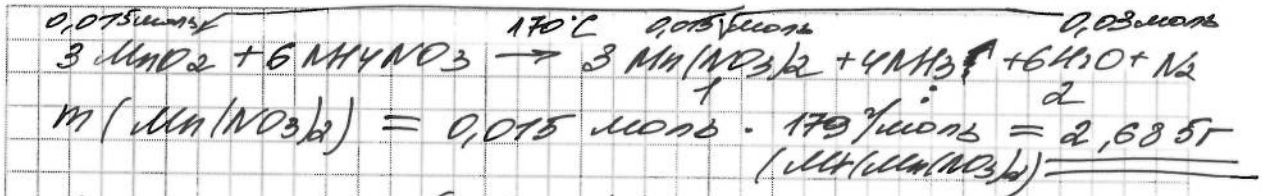 0,015 моль 170°C 0,015 моль 0,03 моль
3 MnO2 + 6 NH4NO3 → 3 Mn(NO3)2 + 4NH3↑ + 6H2O + N2
1 : 2
m (Mn(NO3)2) = 0,015 моль · 179 г/моль = 2,685г
(Mr(Mn(NO3)2)